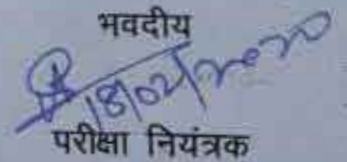 भवदीय
18/02/2020
परीक्षा नियंत्रक